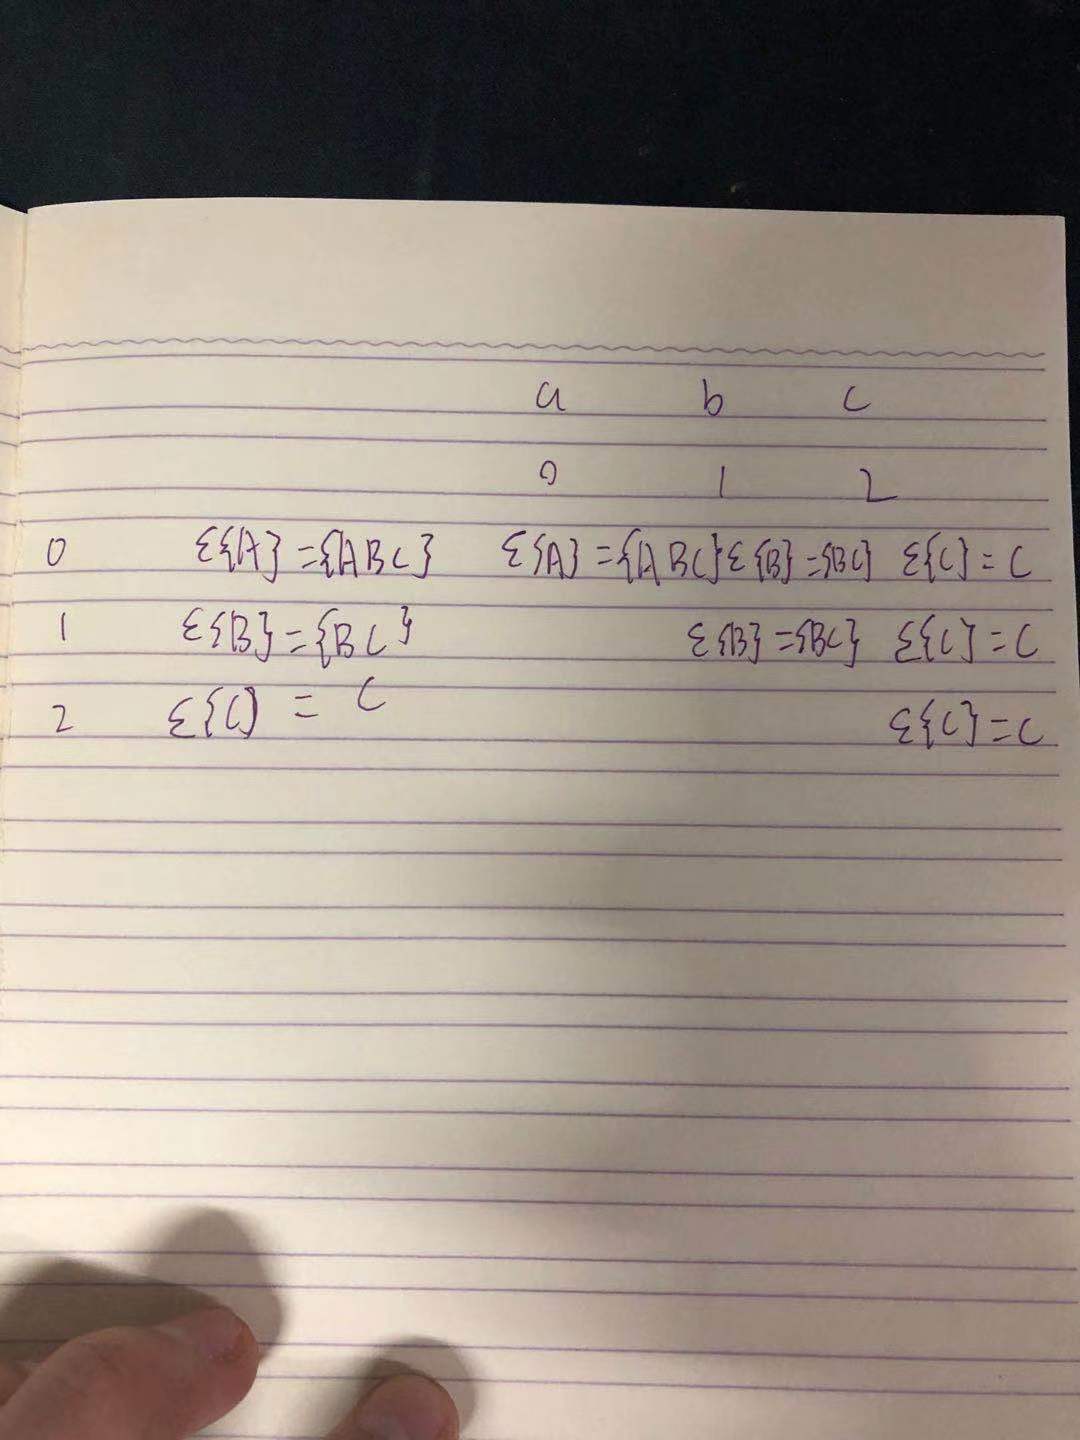 a b c
0 1 2
0 ε{A} = {ABC} ε{A} = {ABC} ε{B} = {BC} ε{C} = C
1 ε{B} = {BC} ε{B} = {BC} ε{C} = C
2 ε{C} = C ε{C} = C